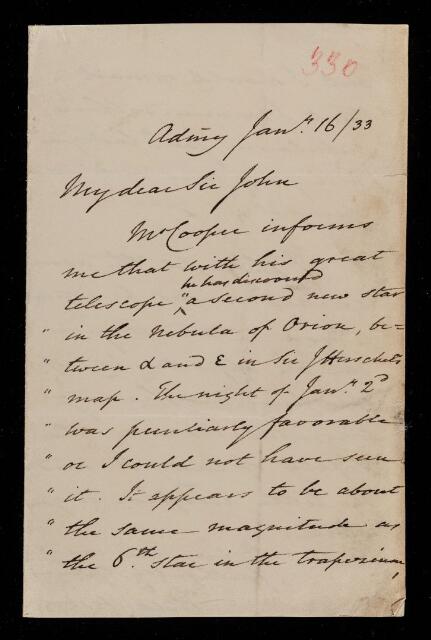 330
Admty Jany. 16/33
My dear Sir John
Mr Cooper informs
me that with his great
he has discovered
telescope "a second new star
" in the Nebula of Orion, be=
" tween α and ε in Sir J Herschel's
" map. The night of Jany. 2d
" was peculiarly favorable
" or I could not have seen
" it. It appears to be about
" the same magnitude as
" the 6th star in the trapezium,